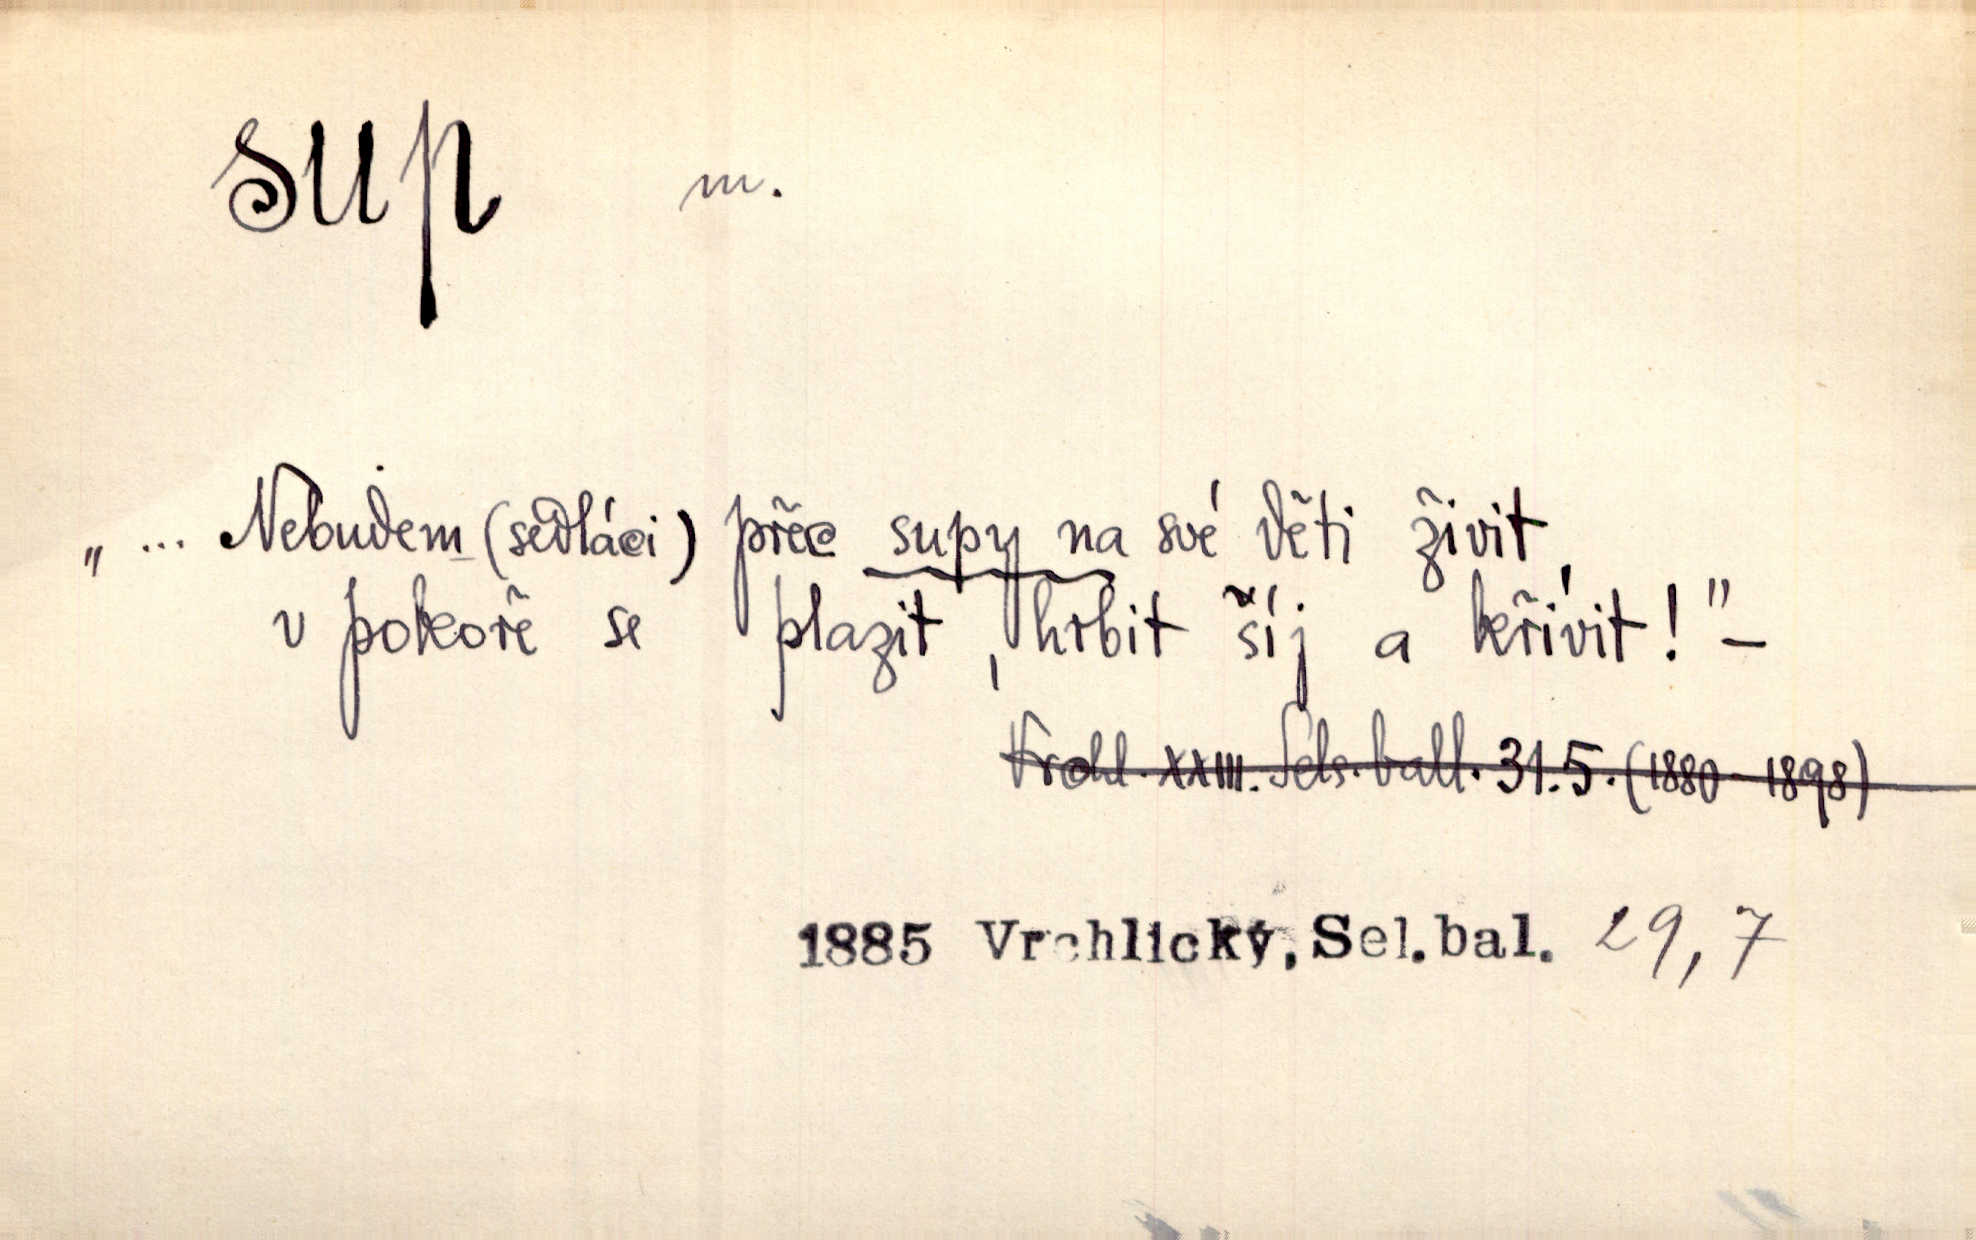 sup m.
„... Nebudem (sedláci) přec supy na své děti živit,
v pokoře se plazit, hrbit šíj a křivit!" –
Vrchl. XXIII. Sels. ball. 31.5. (1880–1898)
1885 Vrchlický, Sel. bal. 29,7